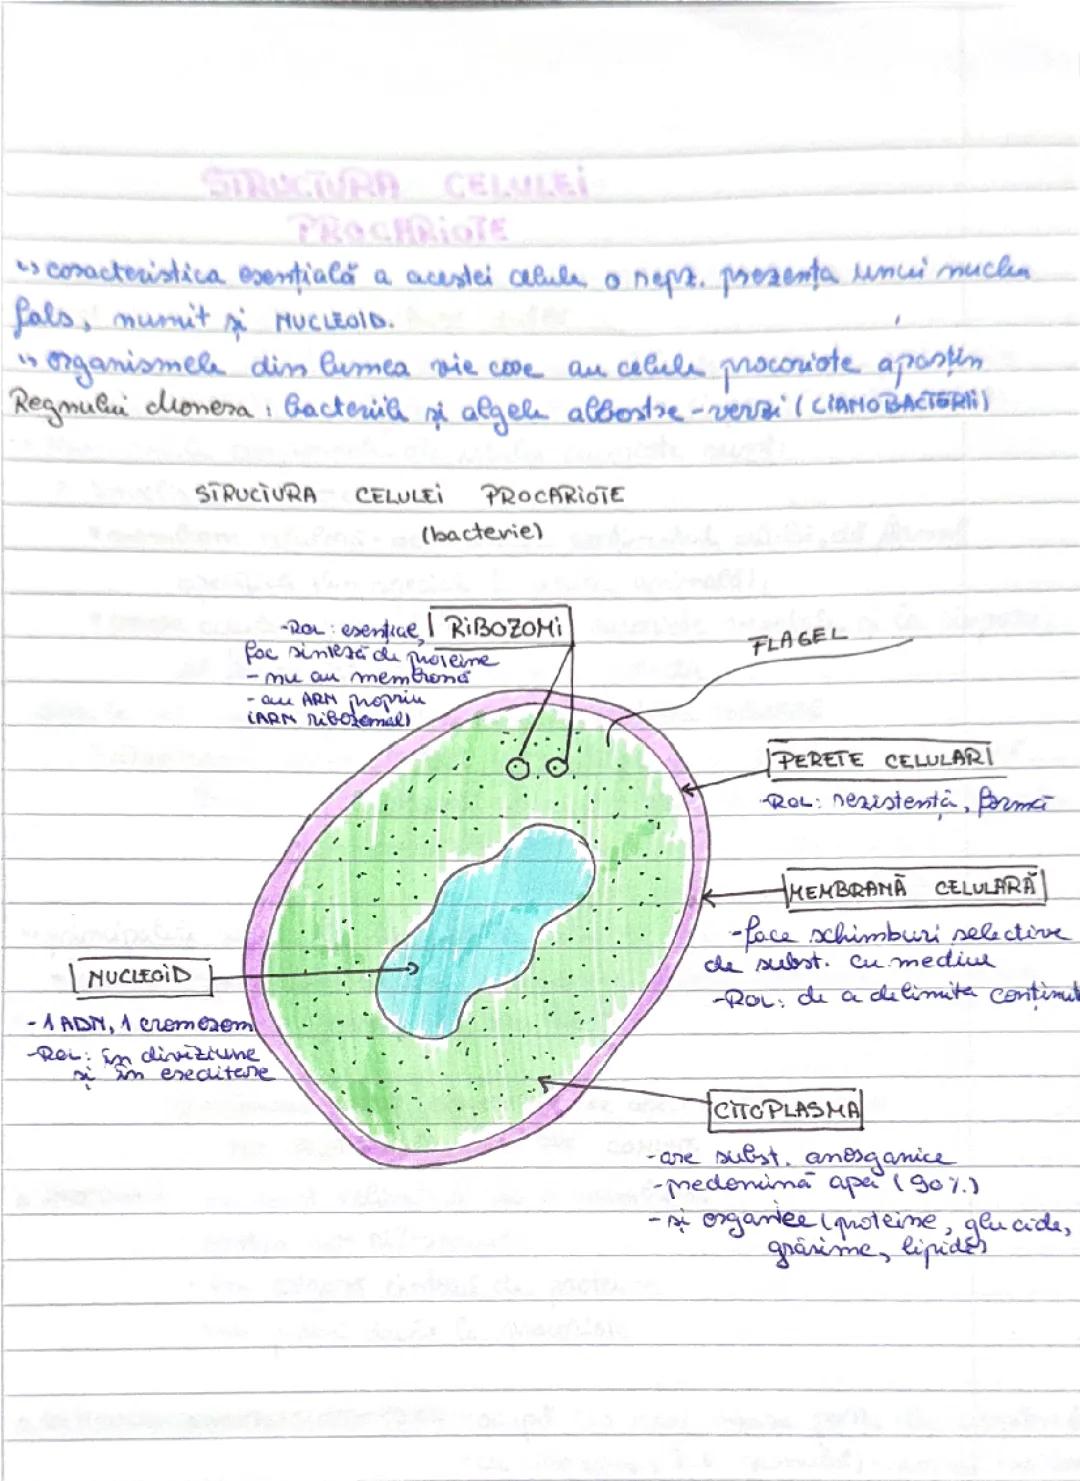 STRUCTURA CELULEI
PROCARIOTE
↳ caracteristica esențială a acestei celule o repz. prezența unui nucleu
fals, numit și NUCLEOID.
↳ organismele din lumea vie care au celule procariote aparțin
Regnului Monera : bacteriile și algele albastre-verzi (CIANOBACTERII)
STRUCTURA CELULEI PROCARIOTE
(bacterie)
RIBOZOMI
-ROL: esențial,
fac sinteză de proteine
- nu au membrană
- au ARN propriu
(ARN ribozomal)
FLAGEL
PERETE CELULAR
-ROL: rezistență, formă
MEMBRANĂ CELULARĂ
-face schimburi selective
de subst. cu mediul
-ROL: de a delimita conținut
NUCLEOID
-1 ADN, 1 cromozom
-ROL: în diviziune
și în ereditate
CITOPLASMA
-are subst. anorganice
-predomină apa (90%)
-și organice (proteine, glucide,
grăsime, lipide)